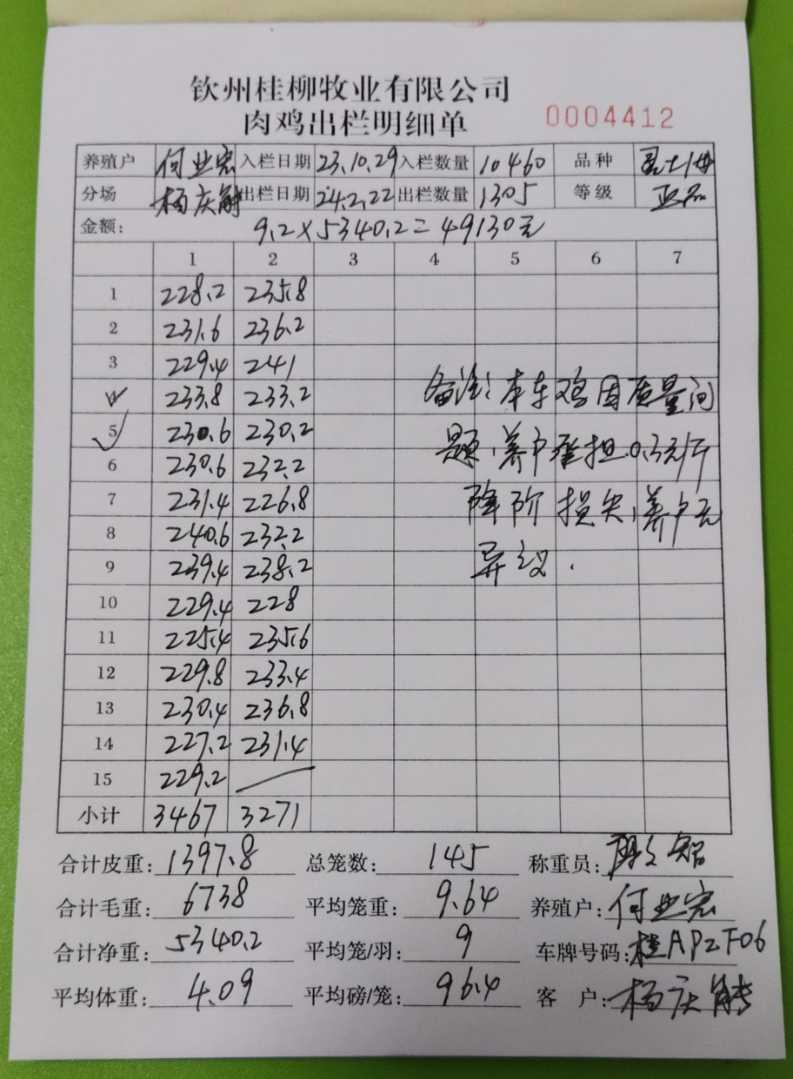 钦州桂柳牧业有限公司
肉鸡出栏明细单 0004412
养殖户 何业宏 入栏日期 23.10.29 入栏数量 10460 品种
分场 杨庆 出栏日期 24.2.22 出栏数量 1305 等级 正品
金额: 9.2×5340.2=49130元
1 2 3 4 5 6 7
1 228.2 235.8
2 231.6 236.2
3 229.4 241
4 233.8 233.2
5 230.6 230.2
6 230.6 232.2
7 231.4 226.8
8 240.6 232.2
9 239.4 238.2
10 229.4 228
11 225.4 235.6
12 229.8 233.4
13 230.4 236.8
14 227.2 231.4
15 229.2
小计 3467 3271
备注: 本车鸡因质量问
题,养户承担0.3元/斤
降阶损失,养户无
异议.
合计皮重: 1397.8 总笼数: 145 称重员:
合计毛重: 6738 平均笼重: 9.64 养殖户: 何业宏
合计净重: 5340.2 平均笼/羽: 9 车牌号码: 桂APZF06
平均体重: 4.09 平均磅/笼: 96.4 客 户: 杨庆